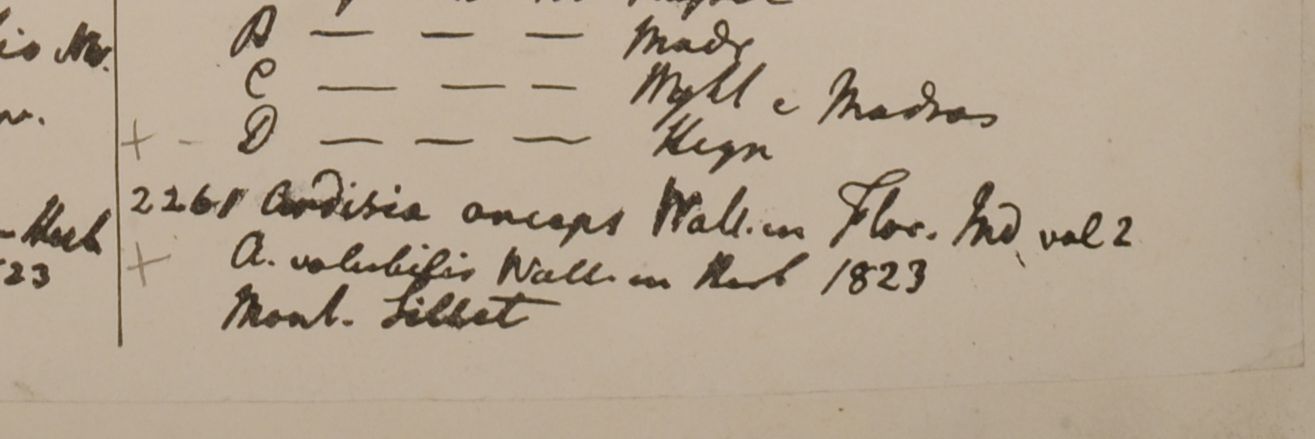 is
B — — — Madr
C — — — Mghl e Madras
+ - D — — — Heyn
2261 Ardisia anceps Wall. in Flor. Ind vol 2
Herb
+ A. volubilis Wall. in Herb 1823
23
Mont. Sillet